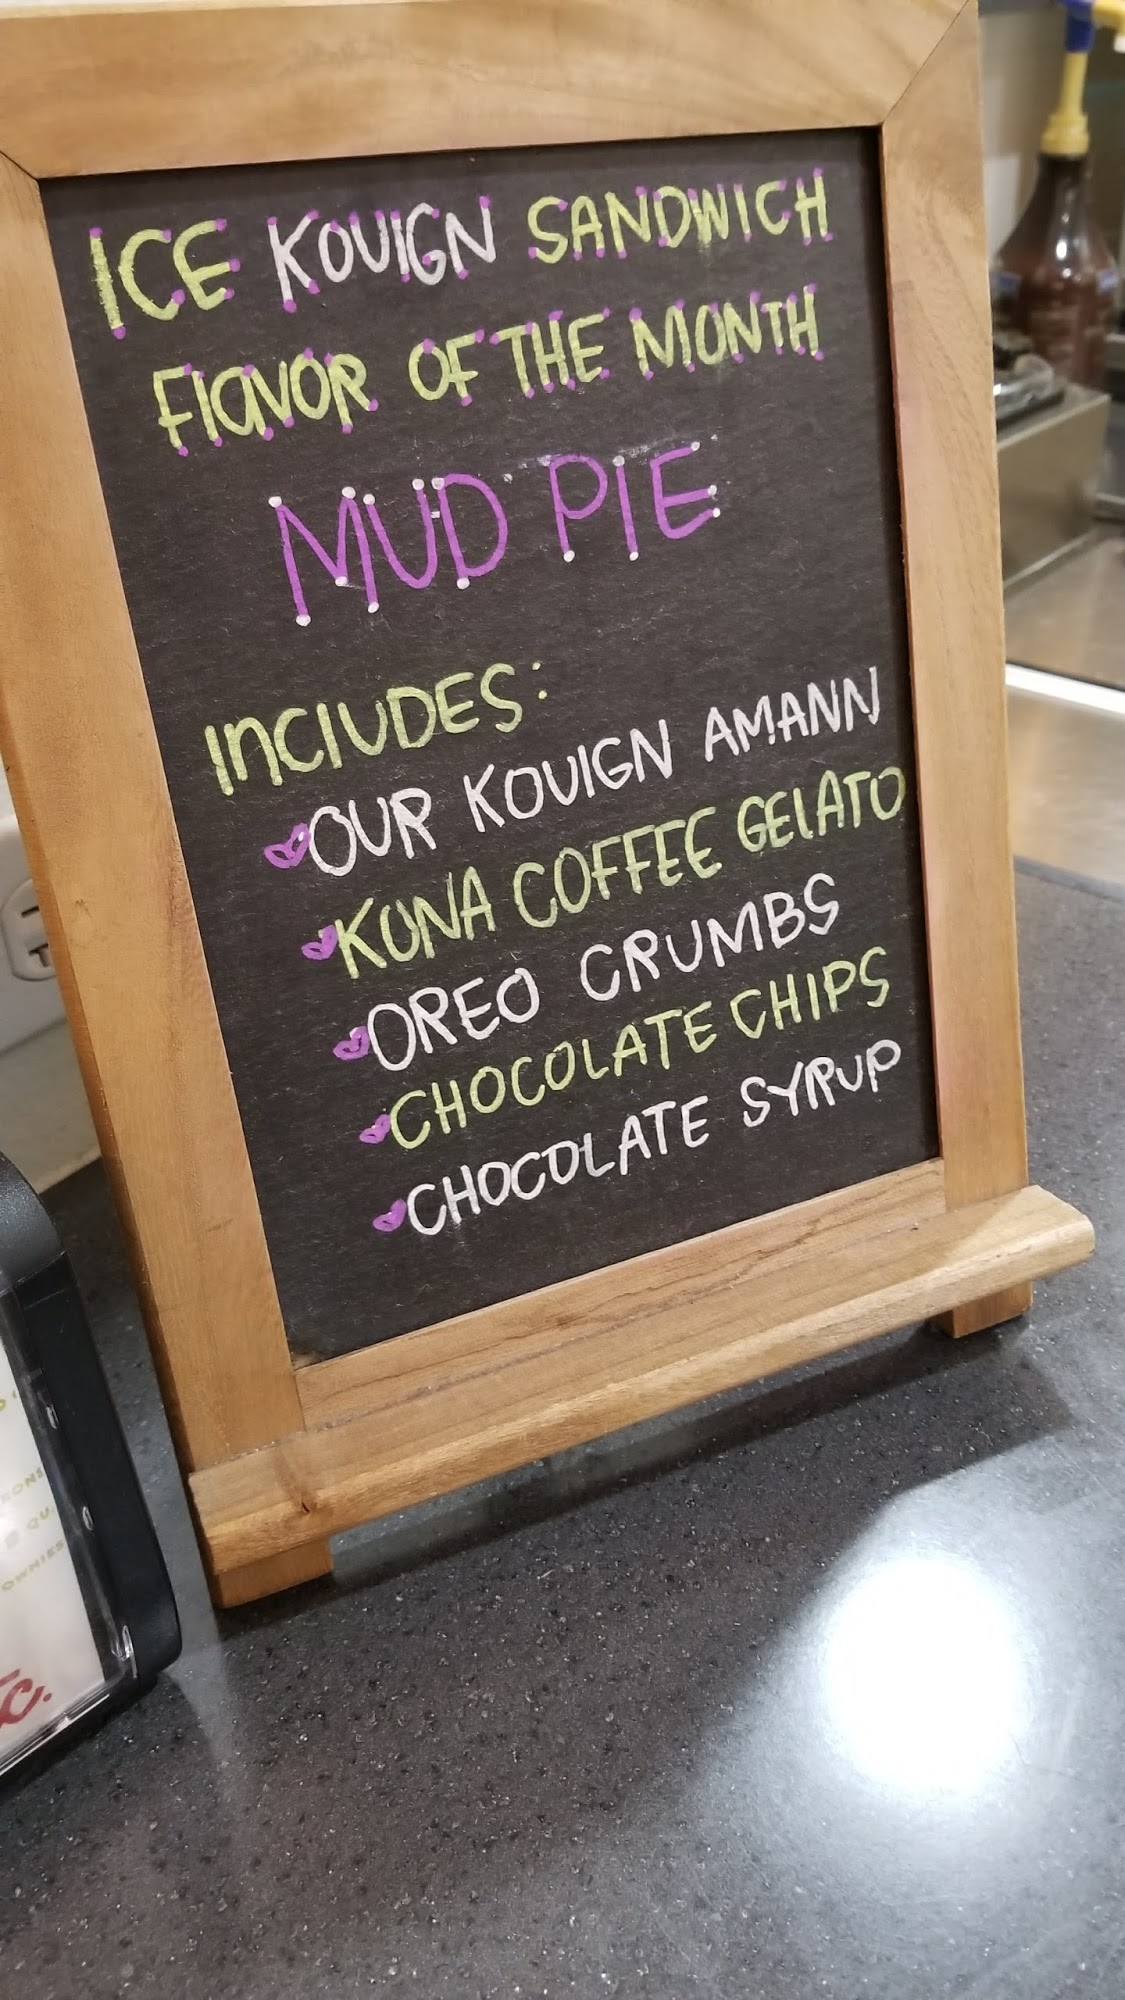 ICE KOUIGN SANDWICH
FlaVOR OF THE MONTH
MUD PIE
INClUDES:
OUR KOUIGN AMANN
KONA COFFEE GElATO
OREO CRUMBS
CHOCOLATE CHIPS
CHOCOLATE SYRUP